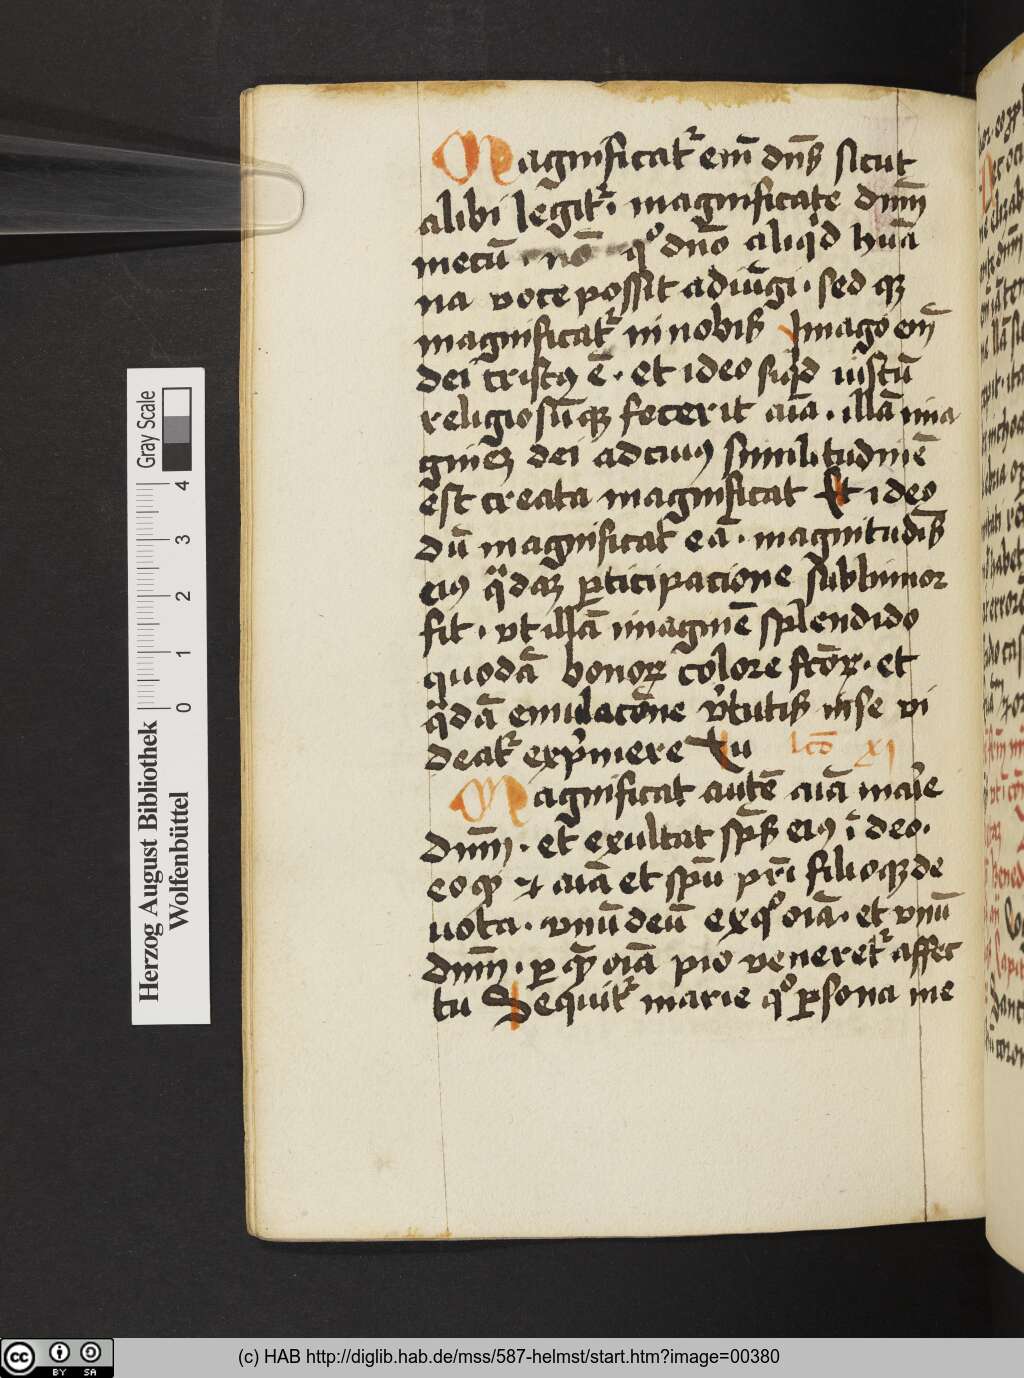 Magnificat᷑ em̄ dn̄s sicut
alibi legit᷑. magnificate dnm̄
mecū. nō qͦ dn̄o aliqͥd hūa
na voce possit adiūgi. sed qꝫ
magnificat᷑ in nobis Imago em̄
dei cristꝰ ē. et ideo siqͥd iustū
religiosūqꝫ fecerit aīa. illā ima
ginē dei ad cuiꝰ similitudinē
est creata magnificat Et ideo
dū magnificat eā. magnitudīs
eiꝰ qͣdaꝫ ꝑticipacione sublimior
fit. vt illā imaginē splendido
quodā bonoꝝ colore fcōꝝ. et
qͣdā emulacōne vͥtutis in se vi
deat᷑ exp̄mere Tu lcō xi
Magnificat autē aīa marie
dnm̄. et exultat sp̄s eiꝰ ī deo.
eo qͩ ⁊ aīa et spū pr̄i filioqꝫ de
uota. vnū deū ex qͦ oīa. et vnū
dnm̄. ꝑ quē oīa pio veneret᷑ affec
tu Sequit᷑ marie qͦ ꝑsona me
Herzog August Bibliothek
Wolfenbüttel
Gray Scale
0 1 2 3 4
cc BY SA
(c) HAB http://diglib.hab.de/mss/587-helmst/start.htm?image=00380